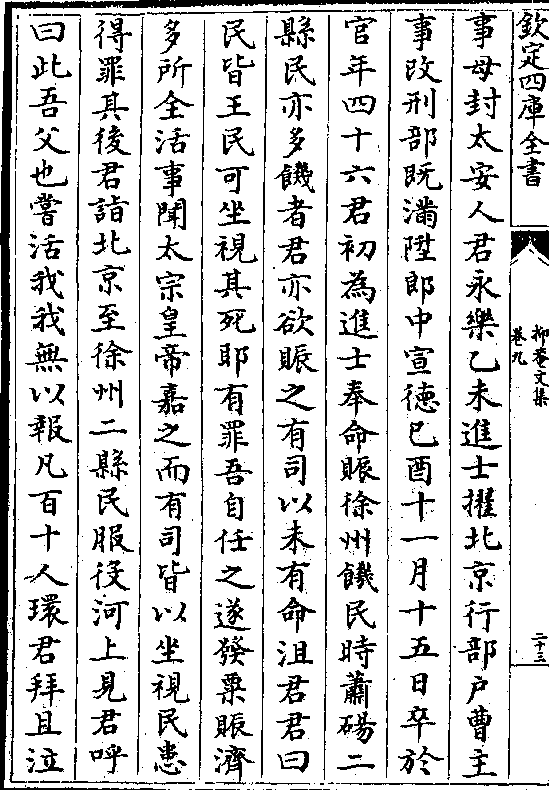 欽定四庫全書
抑菴文集
卷九
二十三
事母封太安人君永樂乙未進士擢北京行部戶曹主
事改刑部既滿陞郎中宣德己酉十一月十五日卒於
官年四十六君初為進士奉命賑徐州饑民時蕭碭二
縣民亦多饑者君亦欲賑之有司以未有命沮君君曰
民皆王民可坐視其死耶有罪吾自任之遂發粟賑濟
多所全活事聞太宗皇帝嘉之而有司皆以坐視民患
得罪其後君詣北京至徐州二縣民服役河上見君呼
曰此吾父也嘗活我我無以報凡百十人環君拜且泣